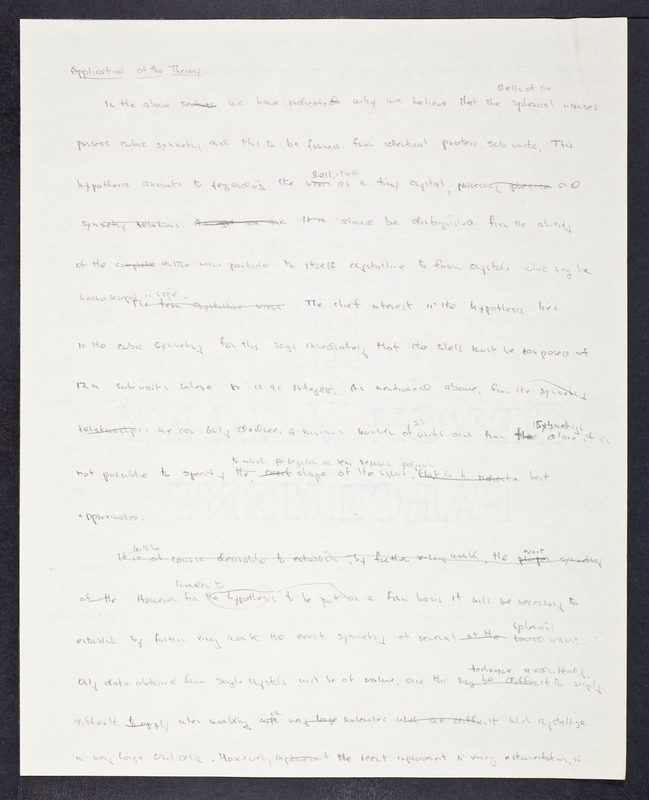 Application of the Theory
shells of the
In the above section we have indicated why we believe that the spherical viruses
possess cubic symmetry and thus to be formed from identical protein sub units. This
hypothesis amounts to regarding the virus as a tiny crystal, possessing
symmetry relations. It should be distinguished from the ability
of the complete entire virus particle to itself crystalline to form crystals which may be
in size.
The term crystalline virus. The chief interest in the hypothesis lies
in the cubic symmetry for this says immediately that the shell must be composed of
12n sub units where n is an integer. As mentioned above, from the symmetry
relationships, we can only deduce a minimum number of units and from the symmetry alone, it is
to which polyhedron or semi regular polygon
not possible to specify the exact shape of the virus, that is to best
approximates.
will be exact
It is of course desirable to establish, by further x-ray work, the proper symmetry
of the However for the hypothesis to be put on a firm basis it will be necessary to
spherical
establish by further x-ray work the exact symmetry of several of the virus.
technique
Only data obtained from single crystals will be of value, and this may be difficult to simply
difficult to apply when working with very large molecules and are difficult which crystallize
in very large unit cells. However, the recent improvement in x-ray instrumentation, in